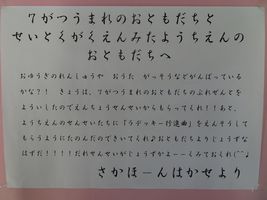 7がつうまれのおともだちと
せいとくがくえんみたようちえんの
おともだちへ
おゆうぎのれんしゅうや おうた がっそうなどがんばっている
かな?! きょうは、7がつうまれのおともだちのぷれぜんとを
よういしたのでえんちょうせんせいからもらってくれ!!あと、
ようちえんのせんせいたちに「ラデッキー行進曲」をえんそうして
もらうようにたのんだのできいてくれ♪おともだちよりじょうずな
はずだ!!!!だれせんせいがじょうずかよーくみておくれ(^^)
さかほーんはかせより